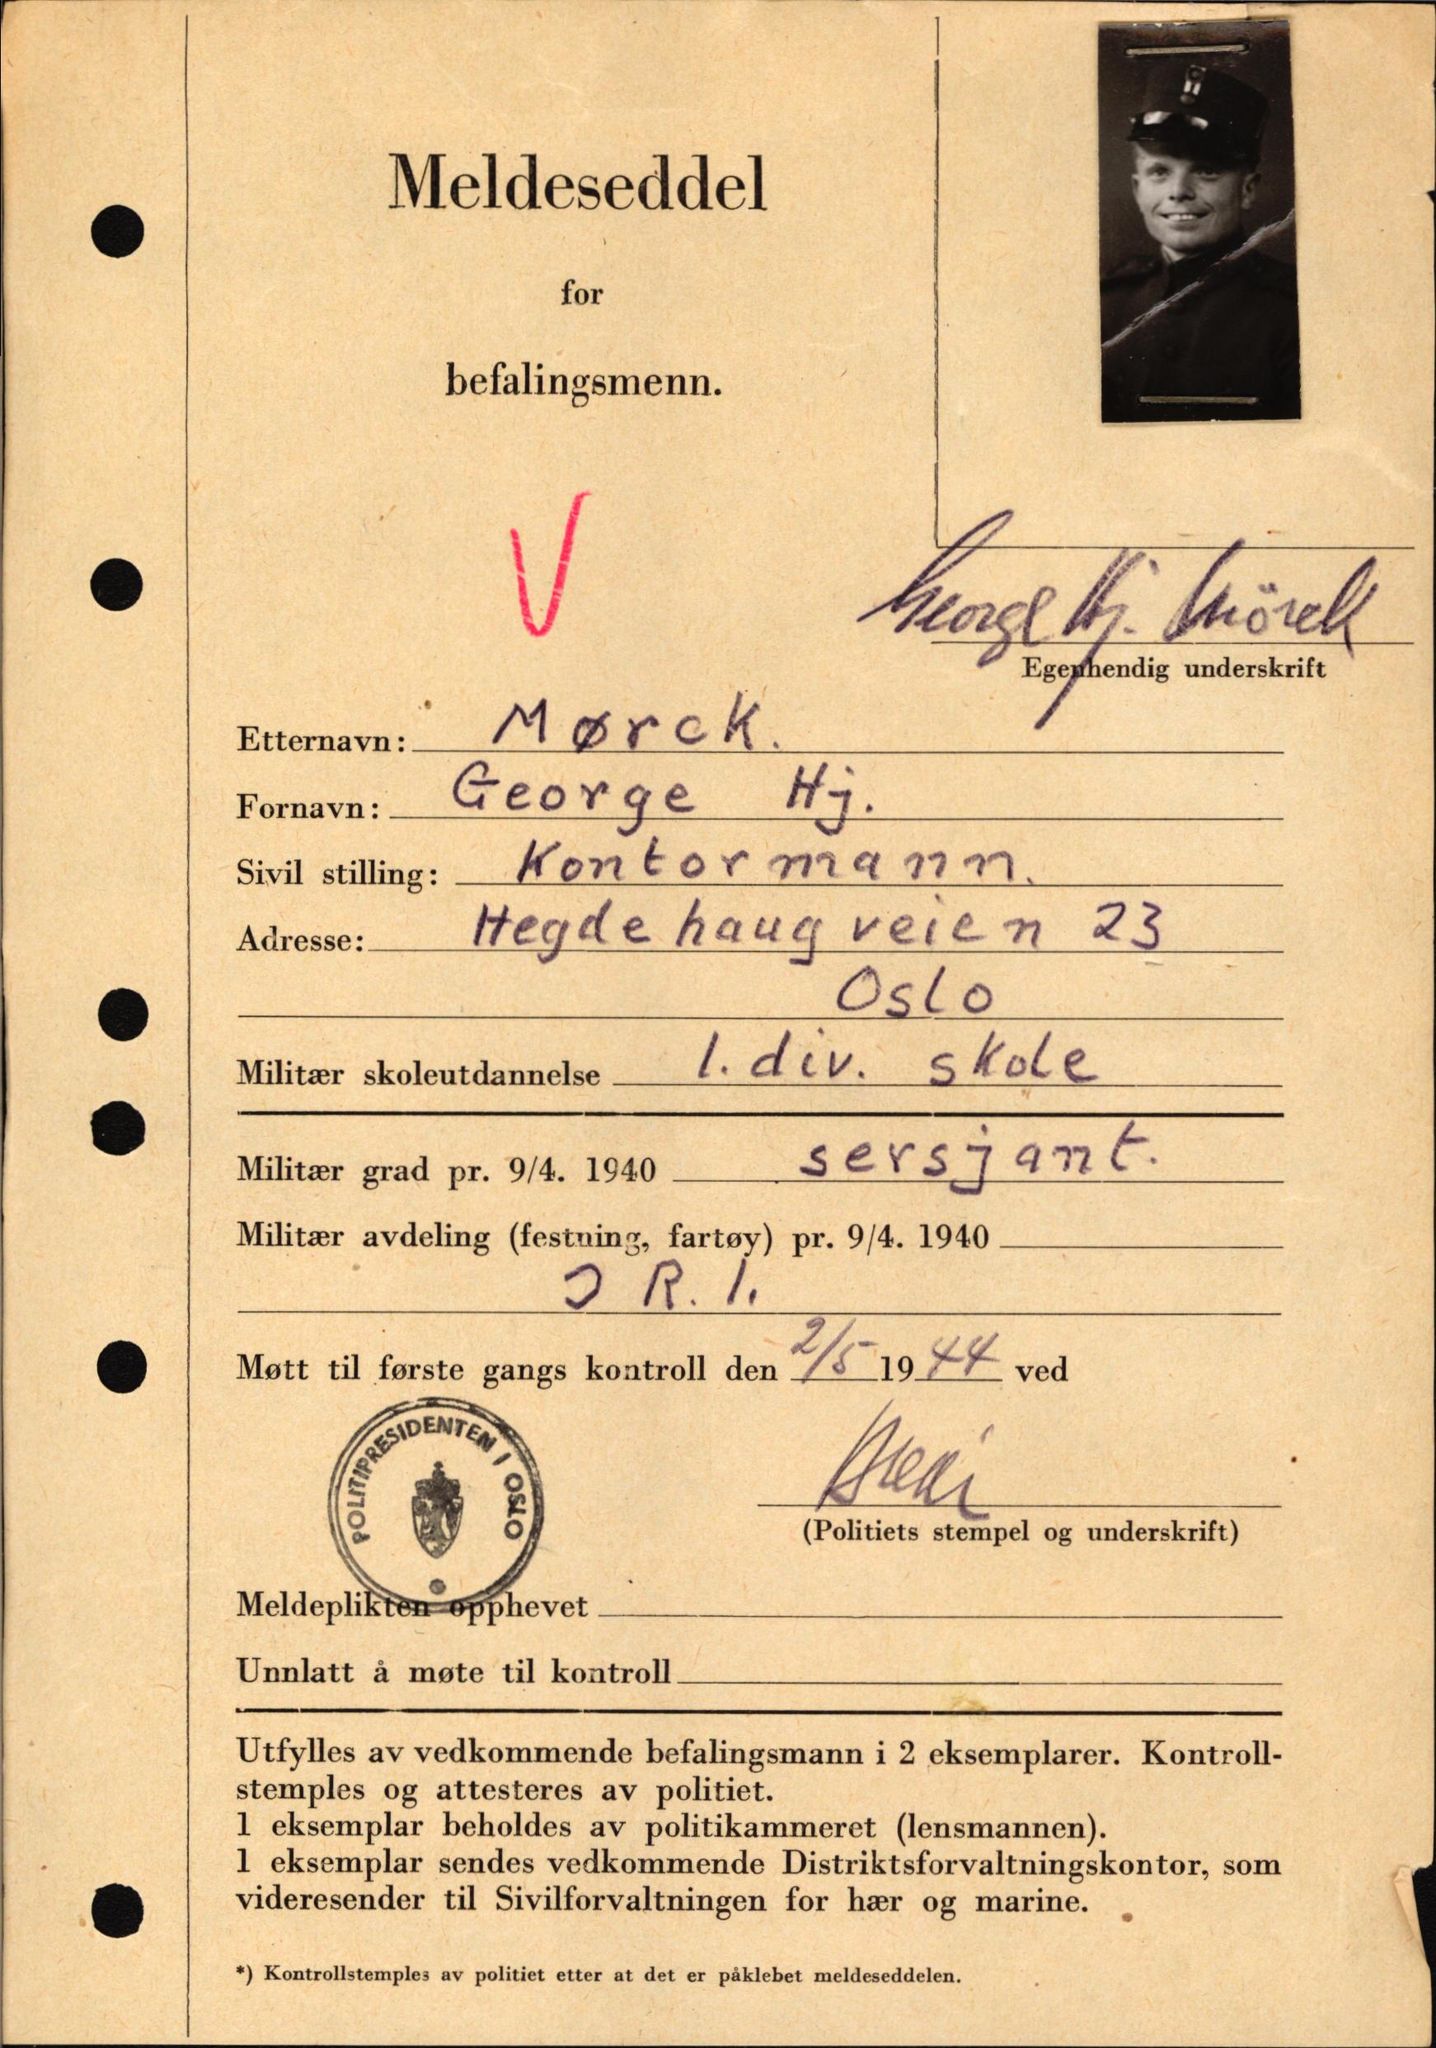 Meldeseddel
for
befalingsmenn.
V
George Hj. Mörck
Egenhendig underskrift
Etternavn: Mørck.
Fornavn: George Hj.
Sivil stilling: Kontormann.
Adresse: Hegdehaugveien 23
Oslo
Militær skoleutdannelse 1. div. skole
Militær grad pr. 9/4. 1940 sersjant.
Militær avdeling (festning, fartøy) pr. 9/4. 1940
I R. 1.
Møtt til første gangs kontroll den 2/5 1944 ved
POLITIPRESIDENTEN I OSLO
(Politiets stempel og underskrift)
Meldeplikten opphevet
Unnlatt å møte til kontroll
Utfylles av vedkommende befalingsmann i 2 eksemplarer. Kontroll-
stemples og attesteres av politiet.
1 eksemplar beholdes av politikammeret (lensmannen).
1 eksemplar sendes vedkommende Distriktsforvaltningskontor, som
videresender til Sivilforvaltningen for hær og marine.
*) Kontrollstemples av politiet etter at det er påklebet meldeseddelen.